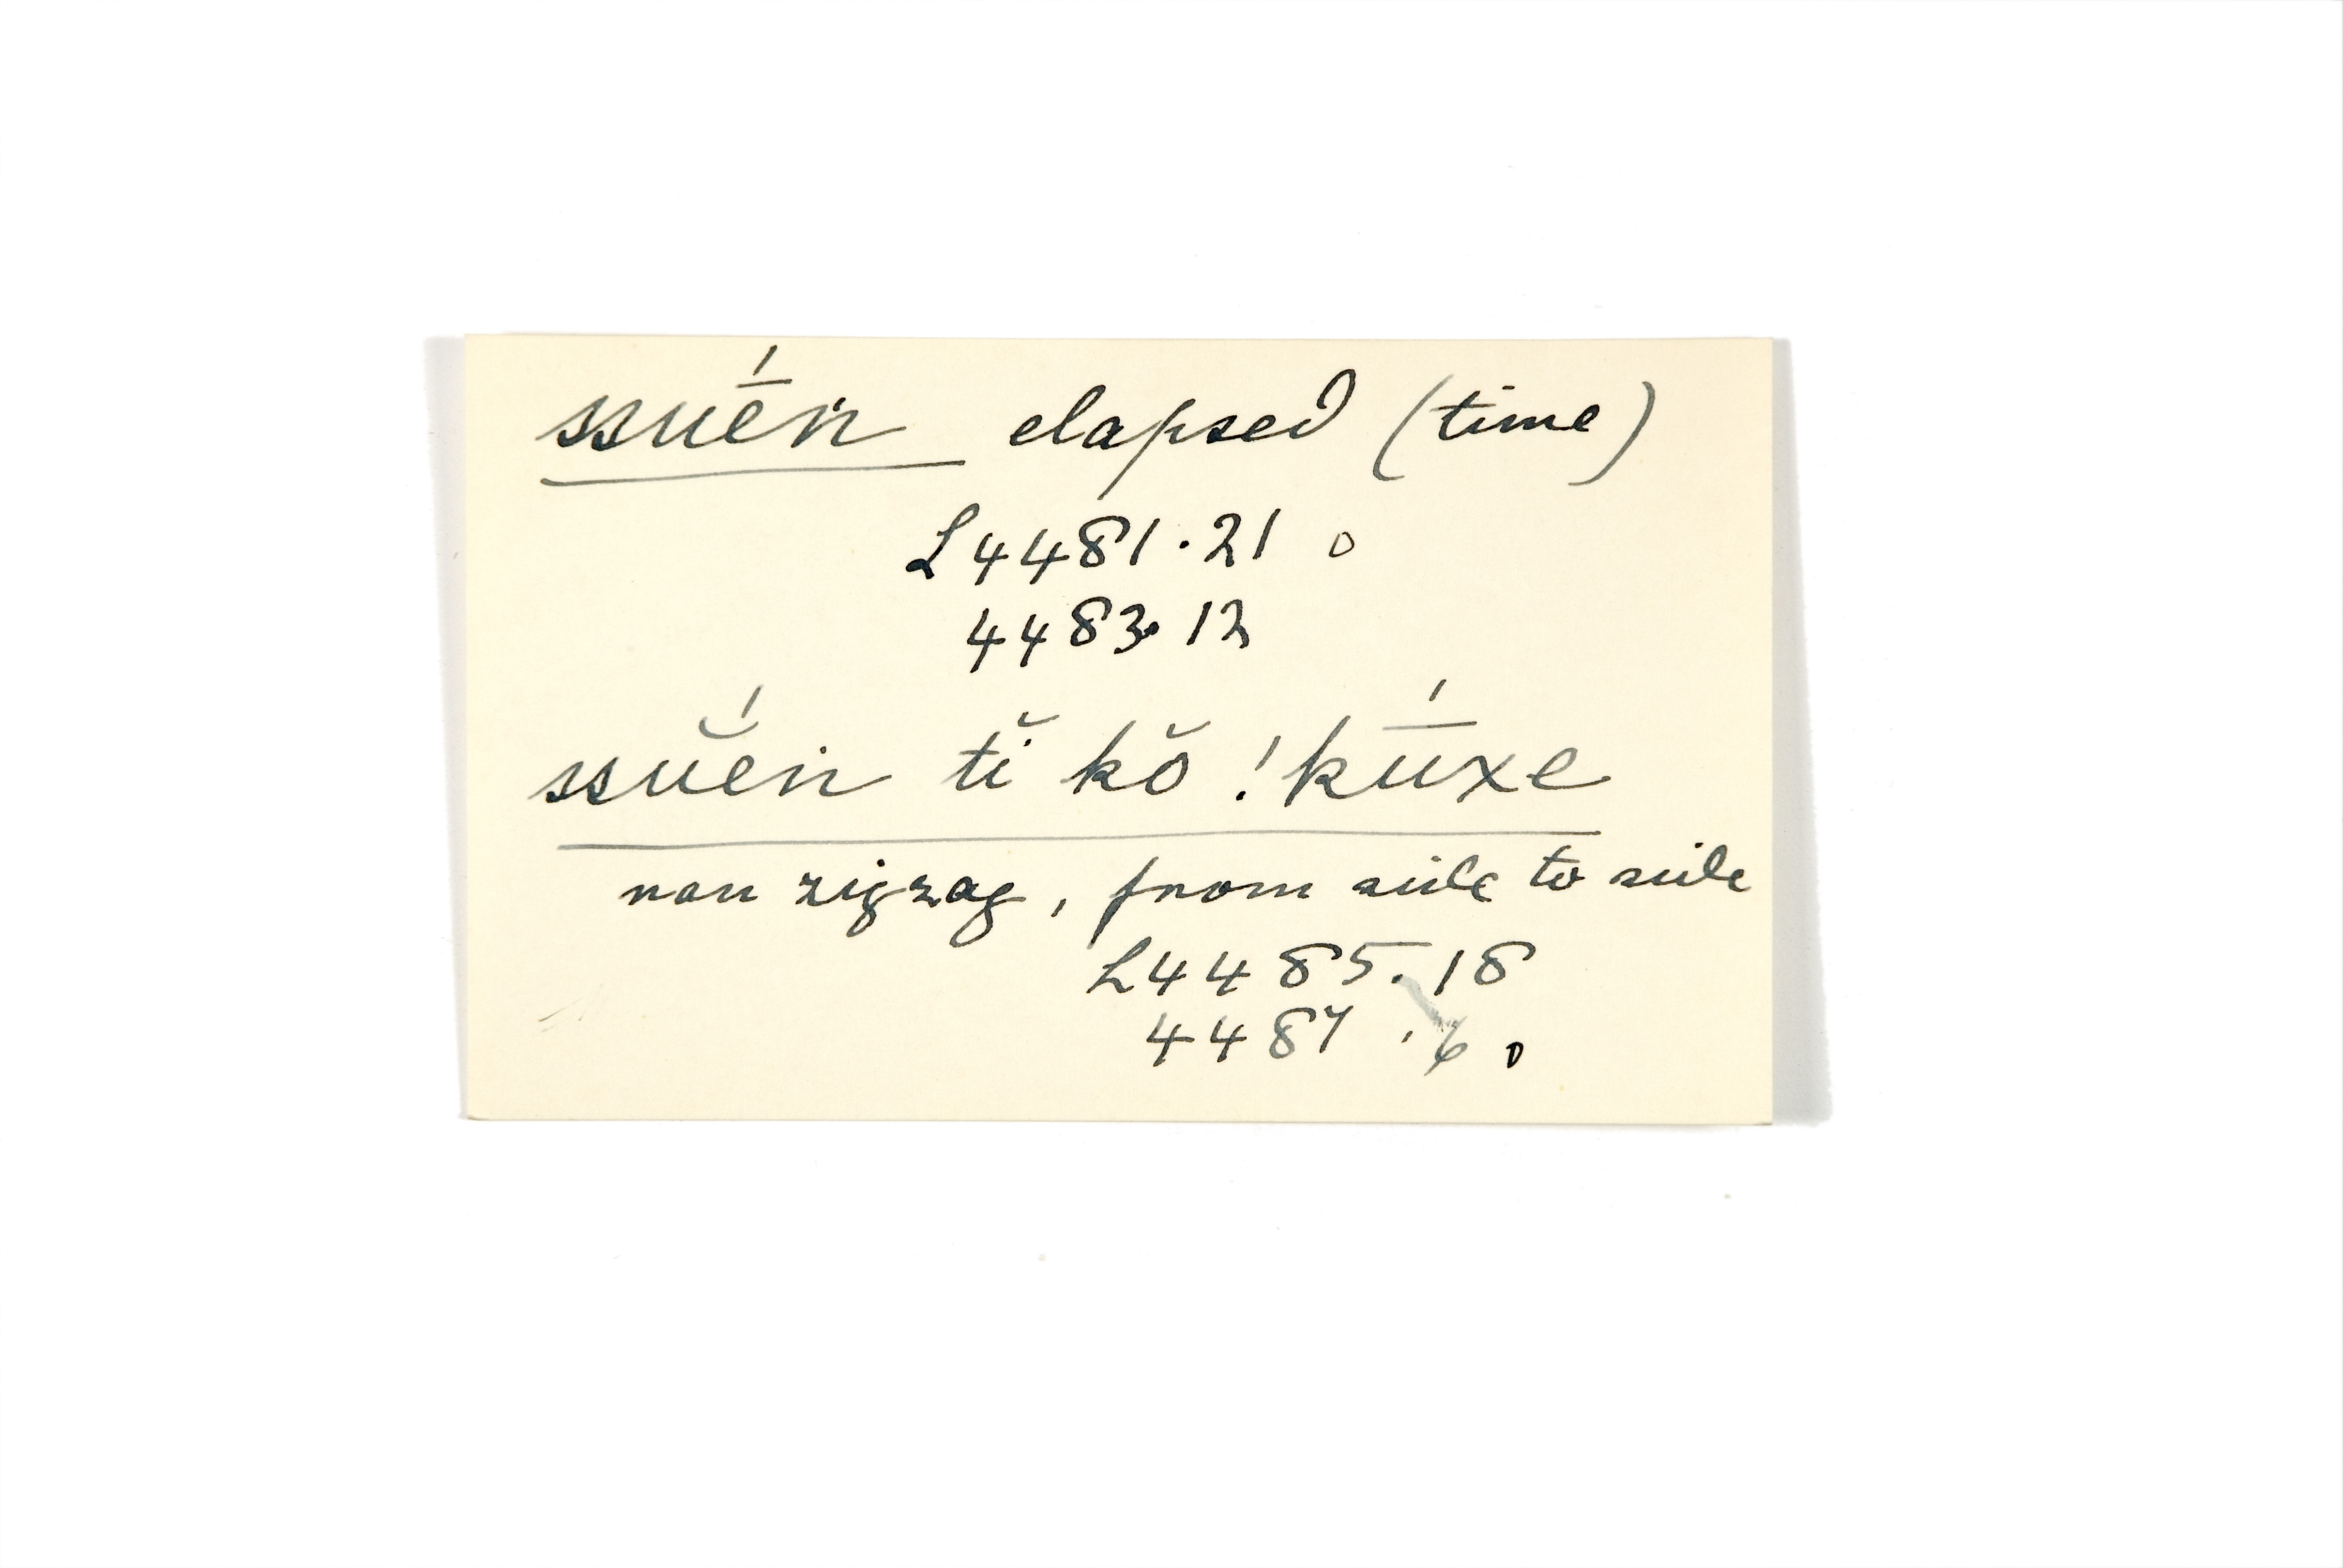 ssuḗn elapsed (time)
L4481.21 o
4483.12
ssuĕ́n tĭ kŏ !kū́xe
ran zigzag, from side to side
L4485.18
4487.6 o